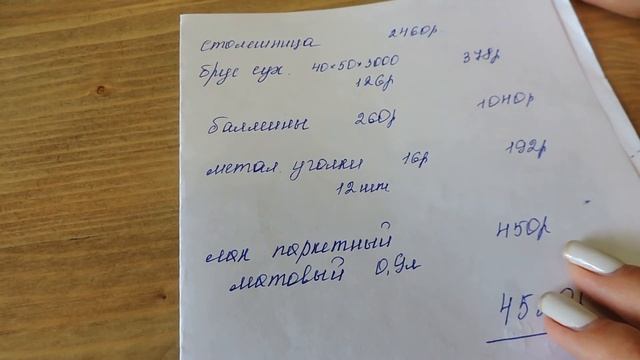 столешница 2460р
брус сух. 40×50×3000 378р
126р
баллясины 260р 1040р
метал. уголки 16р 192р
12 шт
лак паркетный 450р
матовый 0,9л